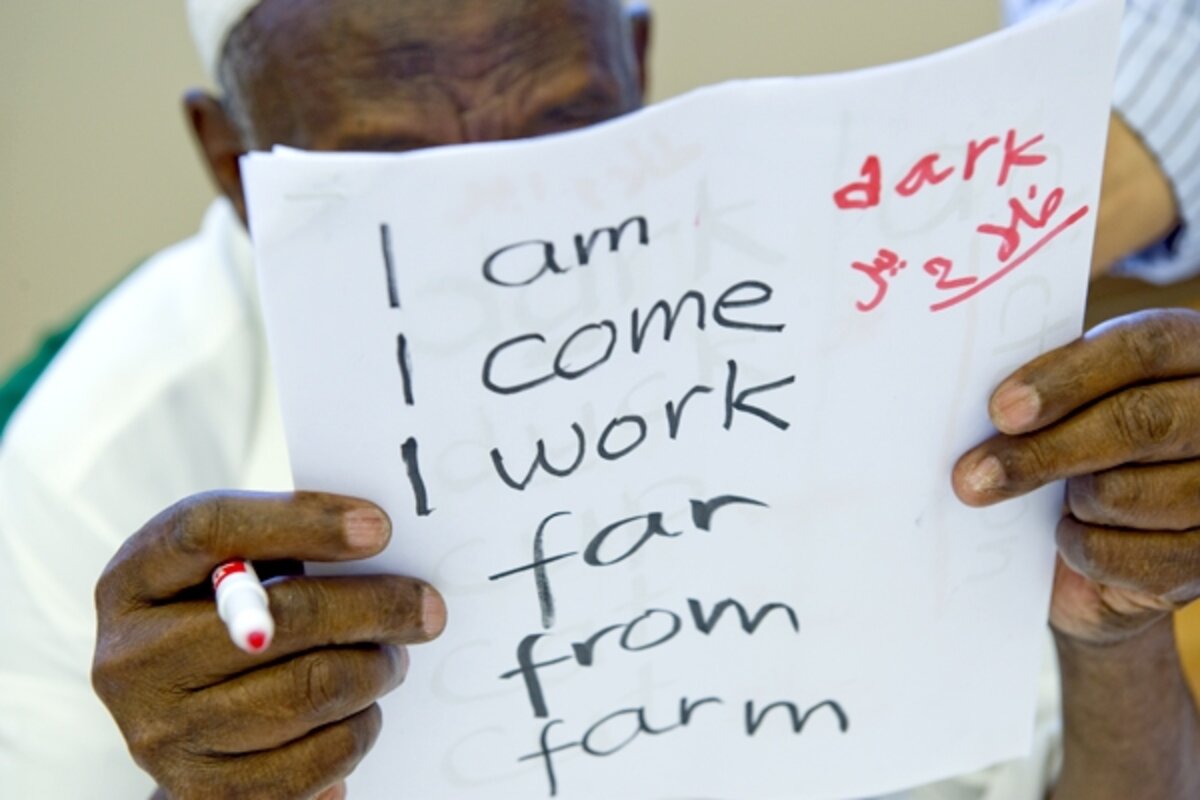 I am
I come
I work
far
from
farm
dark